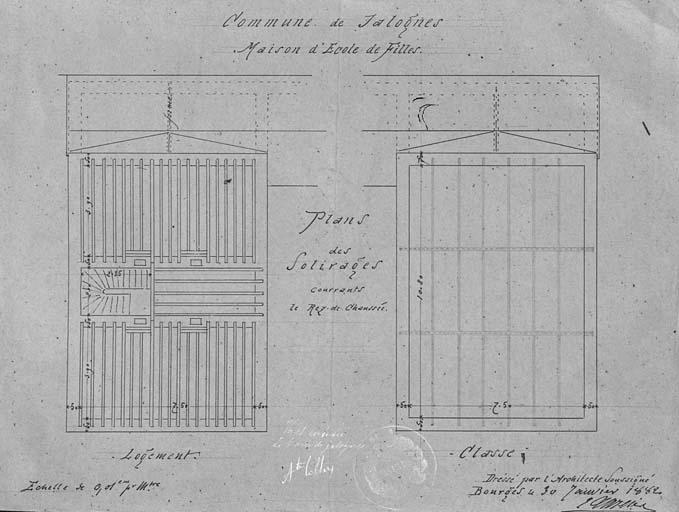 Commune de Jalognes
Maison d'Ecole de Filles.
Plans
des
Solivages
couvrants
le Rez-de-Chaussée.
2.25
7.50
50
50
10.80
7.50
50
50
Logement.
Classe
Echelle de 0,01c p. Mtre
Dressé par l'Architecte Soussigné
Bourges le 30 Janvier 1882